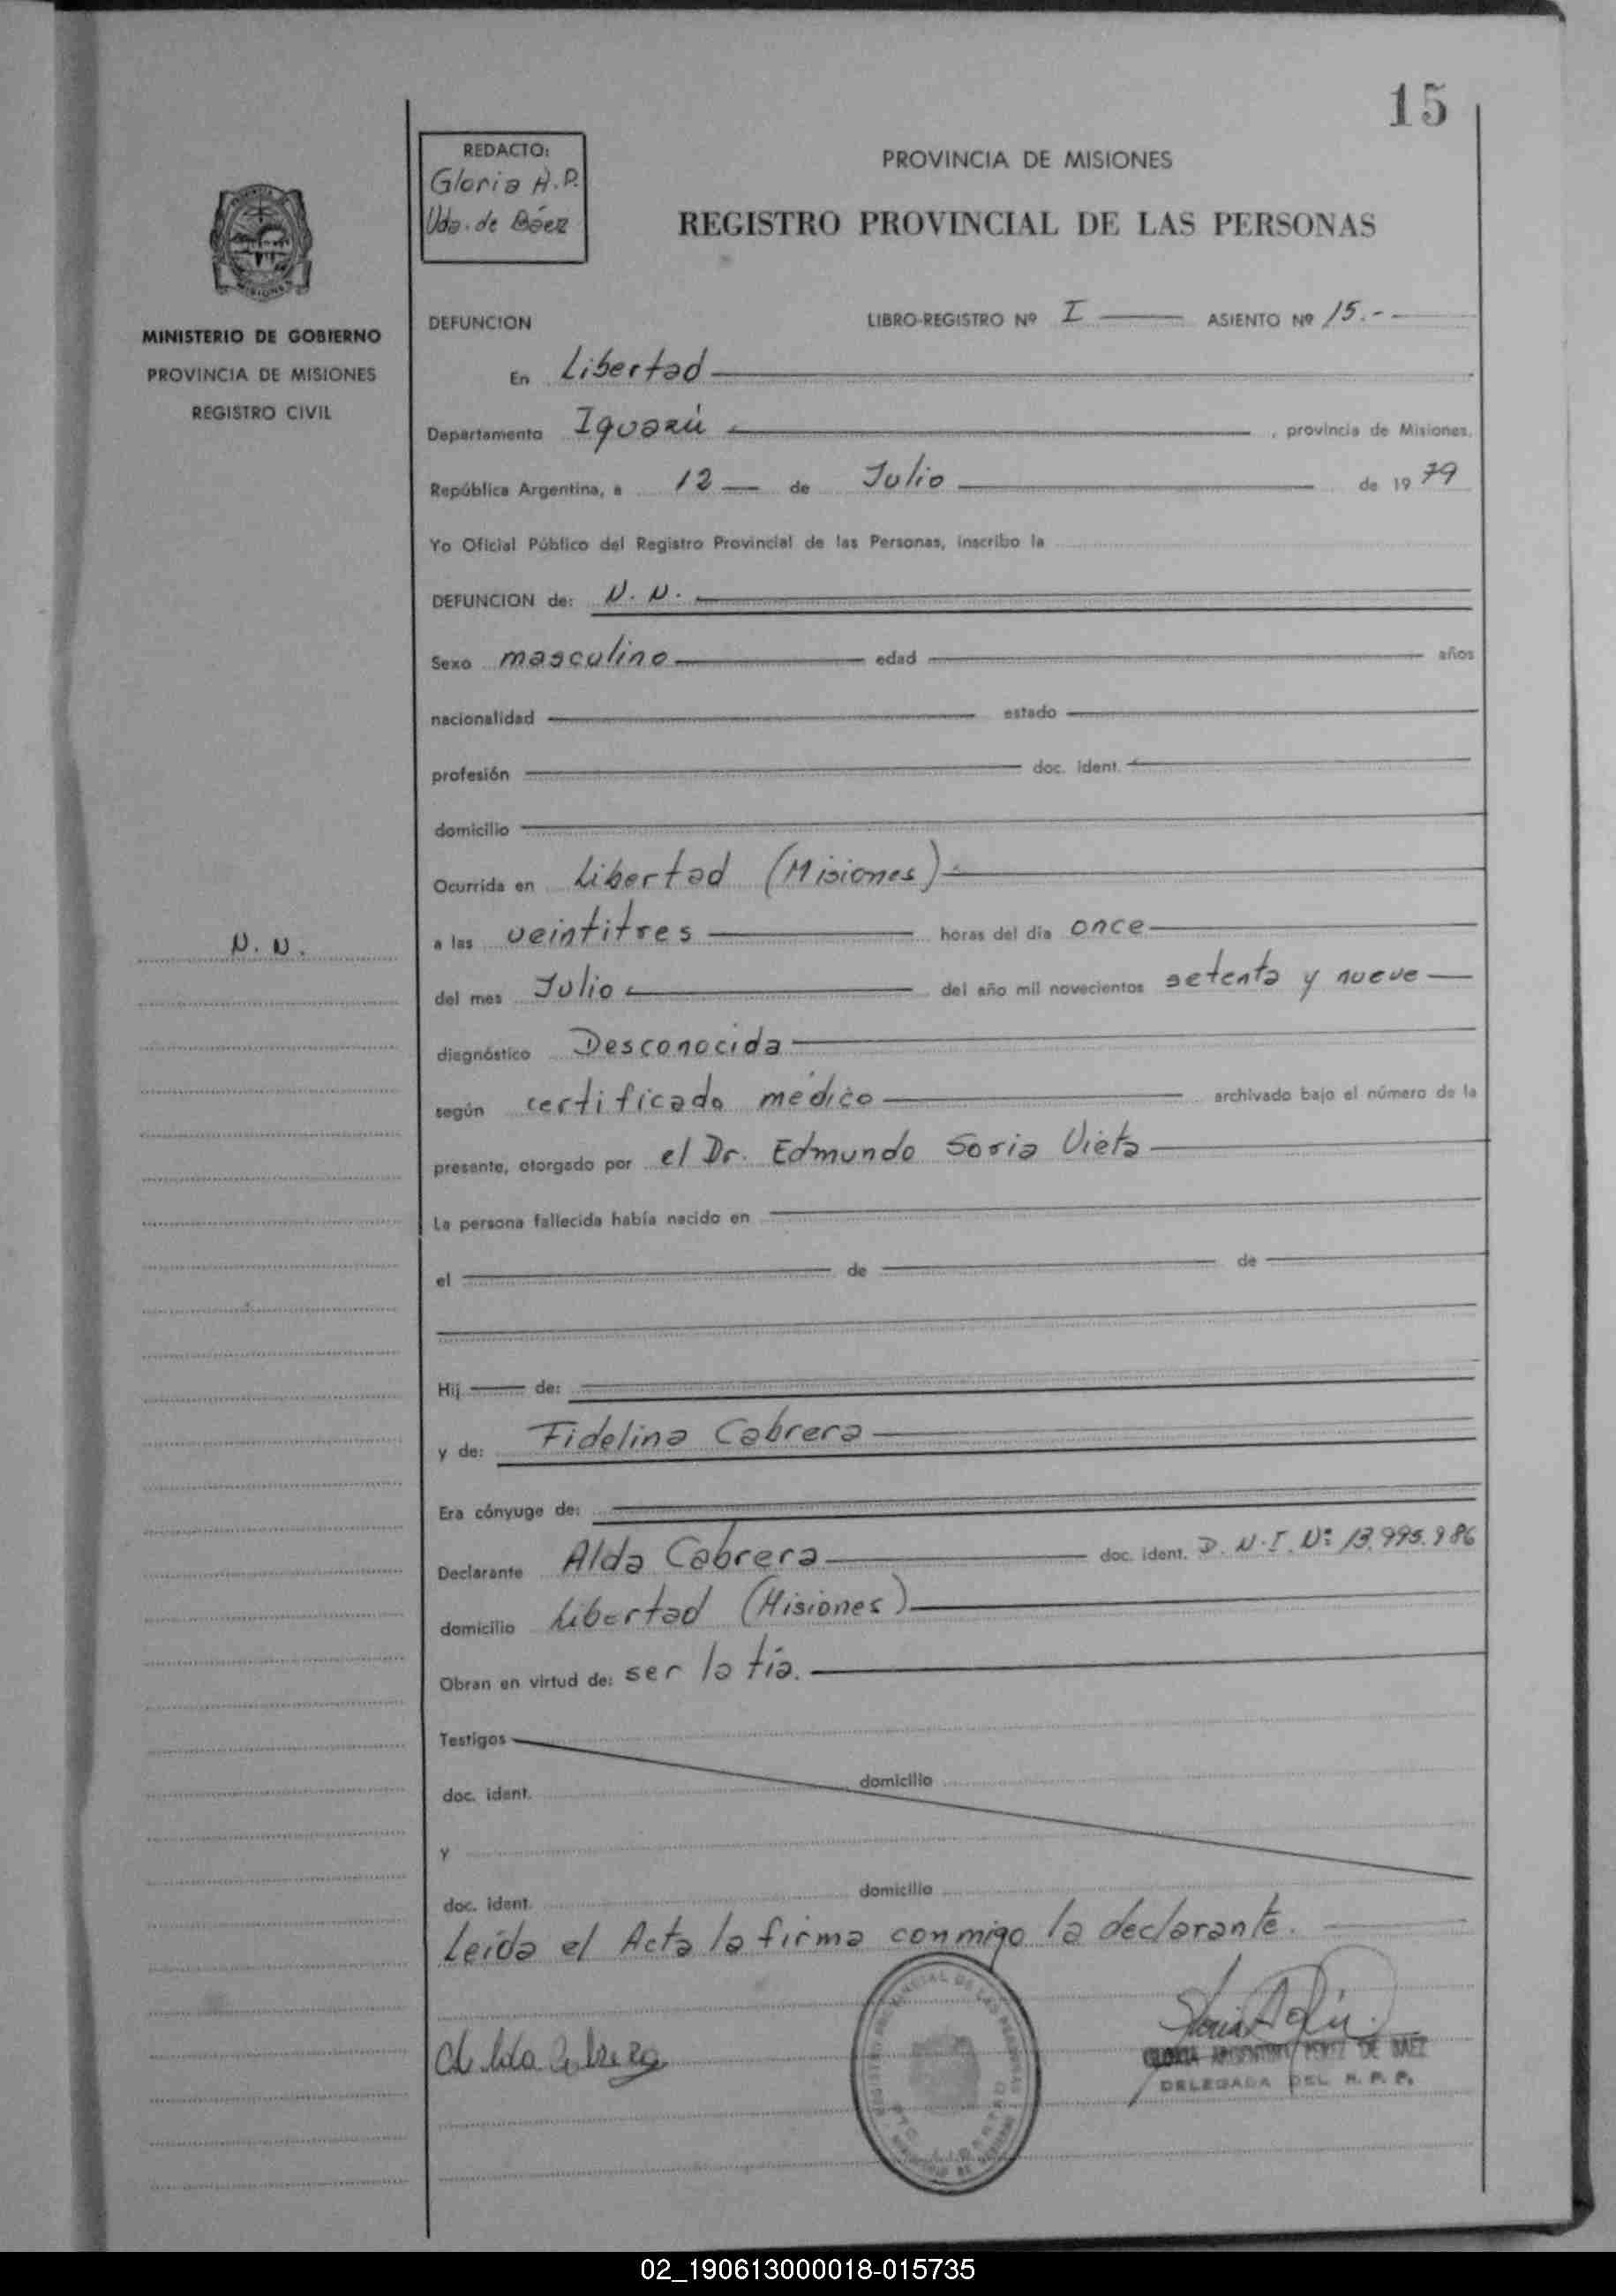 15
REDACTO:
Gloria A. P.
Vda. de Báez
PROVINCIA DE MISIONES
REGISTRO PROVINCIAL DE LAS PERSONAS
MISIONES
MINISTERIO DE GOBIERNO
PROVINCIA DE MISIONES
REGISTRO CIVIL
DEFUNCION LIBRO-REGISTRO Nº I ASIENTO Nº 15.-
En Libertad
Departamento Iguazú , provincia de Misiones.
República Argentina, a 12 de Julio de 1979
Yo Oficial Público del Registro Provincial de las Personas, inscribo la
DEFUNCION de: N. N.
Sexo masculino edad años
nacionalidad estado
profesión doc. ident.
domicilio
Ocurrida en Libertad (Misiones)
N. N.
a las veintitres horas del día once
del mes Julio del año mil novecientos setenta y nueve
diagnóstico Desconocida
según certificado médico archivado bajo el número de la
presente, otorgado por el Dr. Edmundo Soria Vieta
La persona fallecida había nacido en
el de de
Hij de:
y de: Fidelina Cabrera
Era cónyuge de:
Declarante Alda Cabrera doc. ident. D. N. I. Nº 13.995.986
domicilio Libertad (Misiones)
Obran en virtud de: ser la tía.
Testigos
doc. ident. domicilio
y
doc. ident. domicilio
Leída el Acta la firma conmigo la declarante.
Cabrera
GLORIA ARGENTINA PEREZ DE BAEZ
DELEGADA DEL R. P. P.
02_190613000018-015735